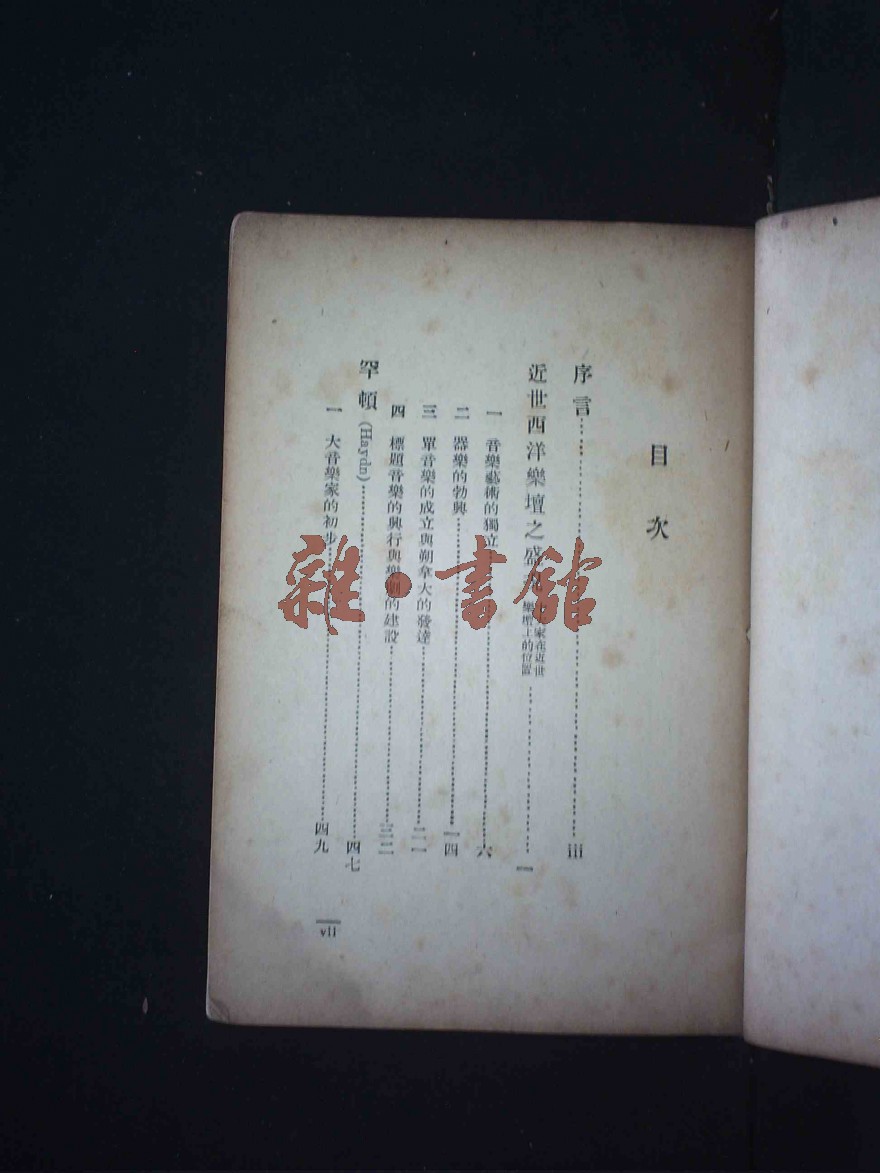 目次
序言 iii
近世西洋樂壇之盛 家在近世樂壇上的位置 一
一 音樂藝術的獨立 六
二 器樂的勃興 一四
三 單音樂的成立與朔拿大的發達 二一
四 標題音樂的興行與樂劇的建設 三二
罕頓(Haydn) 四七
一 大音樂家的初步 四九
vii
雜·書館